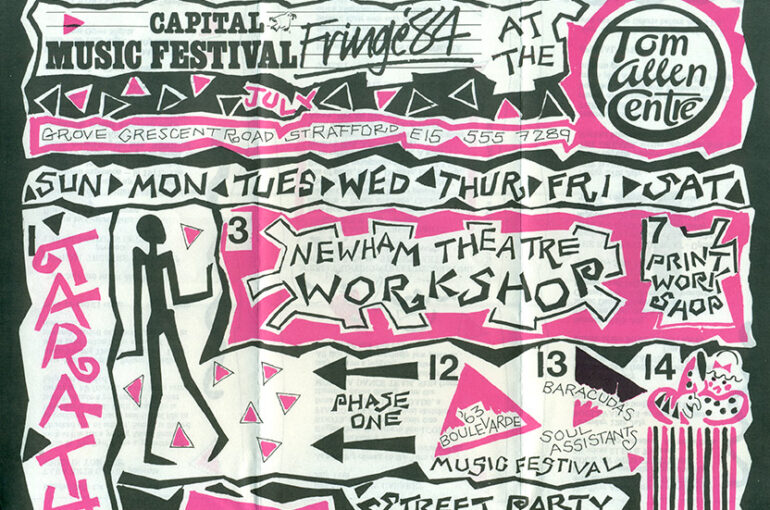 CAPITAL
MUSIC FESTIVAL
Fringe '84
AT
THE
Tom
Allen
Centre
JULY
GROVE CRESCENT ROAD STRATFORD E15 555 7289
SUN MON TUES WED THUR FRI SAT
1
TARATH
3
NEWHAM THEATRE
WORKSHOP
7
PRINT
WORK
SHOP
PHASE
ONE
12
'63
BOULEVARDE
13
BARACUDAS
SOUL
ASSISTANTS
MUSIC FESTIVAL
14
STREET PARTY